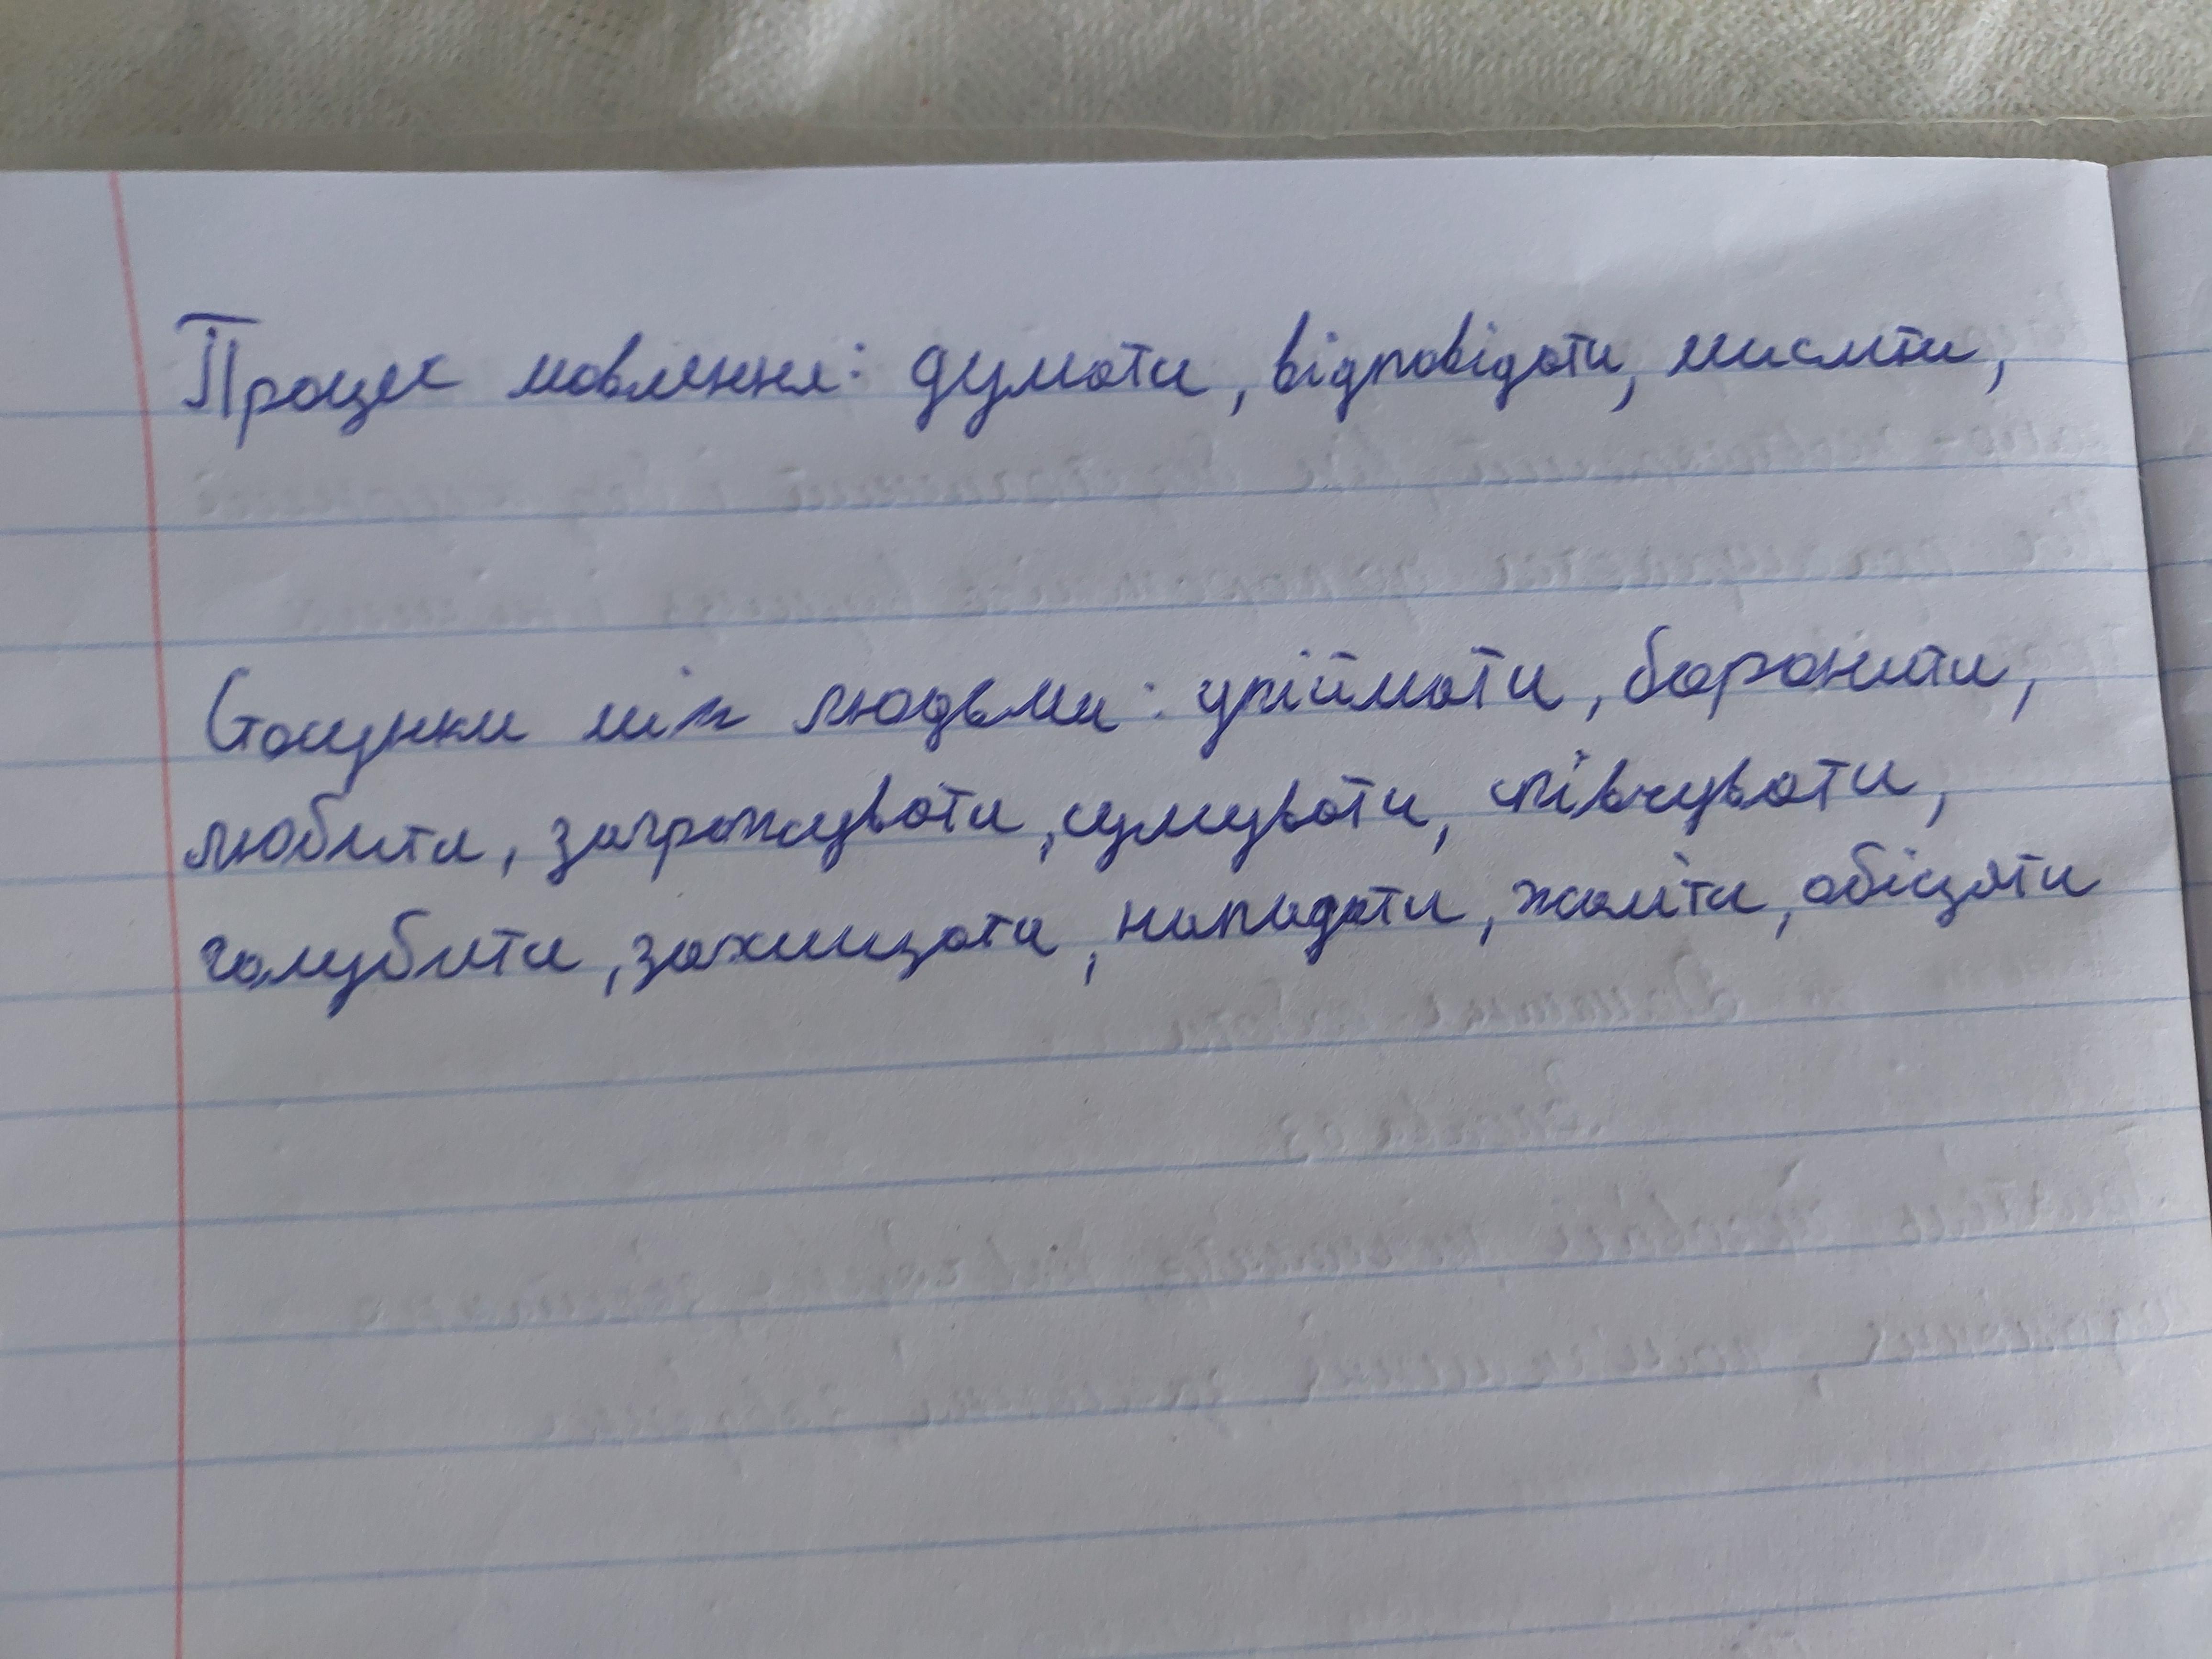 Процес мовлення: думати, відповідати, мислити,
Стосунки між людьми: уріймати, боронити,
любити, загрожувати, сумувати, співчувати,
голубити, захищати, нападати, жаліти, обіцяти